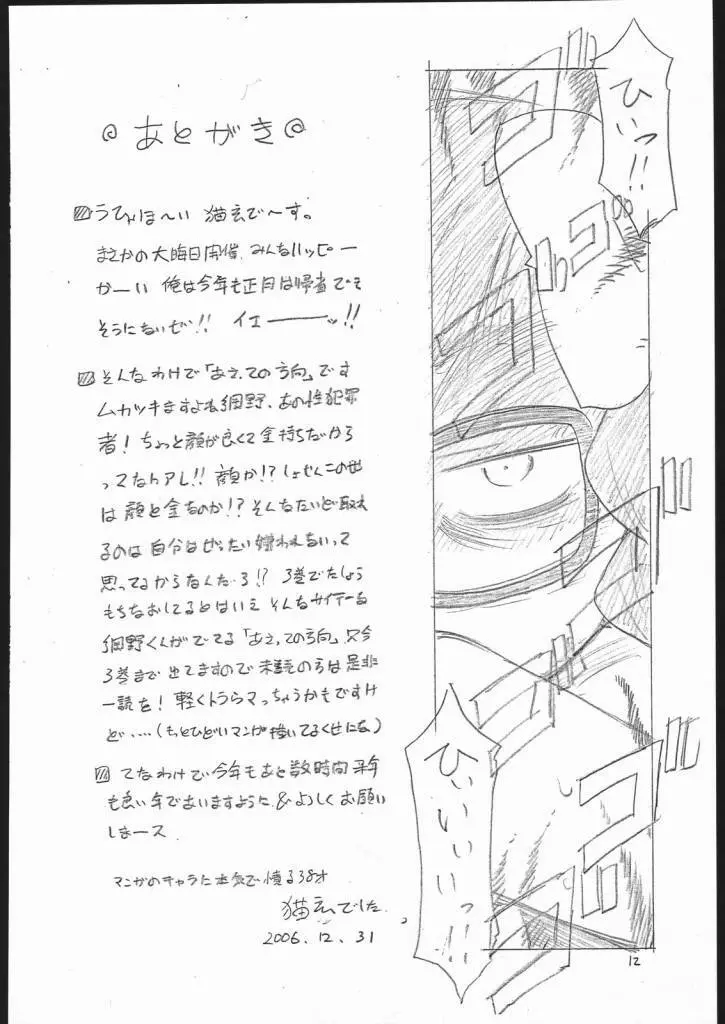 あとがき
うひょほ〜い 猫玄で〜す。
まさかの大晦日開催、みんなハッピー
かーい 俺は今年も正月は帰省でき
そうにないぜ!! イエーーッ!!
そんなわけで「あえての方向」です
ムカツキますよね網野、あの性犯罪
者! ちょっと顔が良くて金持ちだから
ってなんアレ!! 顔か!? しょせんこの世
は 顔と金なのか!? そんなたいど取れ
るのは 自分はぜったい嫌われないって
思ってるからなんだろ!? 3巻でたしょう
もちなおしてるとはいえ そんなサイテーな
網野くんがでてる「あえての方向」只今
3巻まで出てますので 未読の方は是非
一読を! 軽くトラウマっちゃうかもですけ
ど‥‥(もっとひどいマンガ描いてるくせにな)
てなわけで今年もあと数時間 来年
も良い年でありますように & よろしくお願い
しまース
マンガのキャラに本気で憤る38才
猫玄でした。
2006.12.31
ひいっ!!
ひいいいいっ!!
12